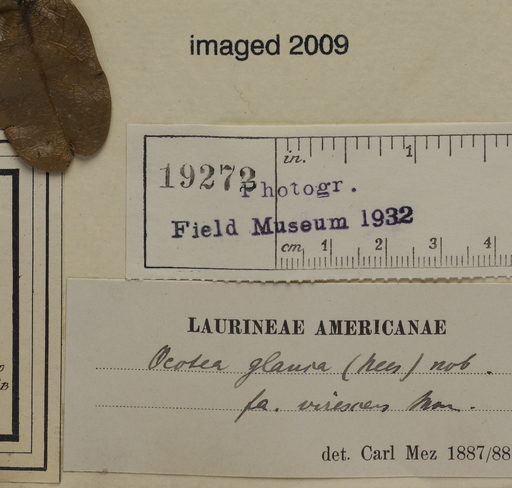 imaged 2009
in. 1
19272
Photogr.
Field Museum 1932
cm. 1 2 3 4
LAURINEAE AMERICANAE
Ocotea glauca (Nees) nob.
fa. virescens
det. Carl Mez 1887/88